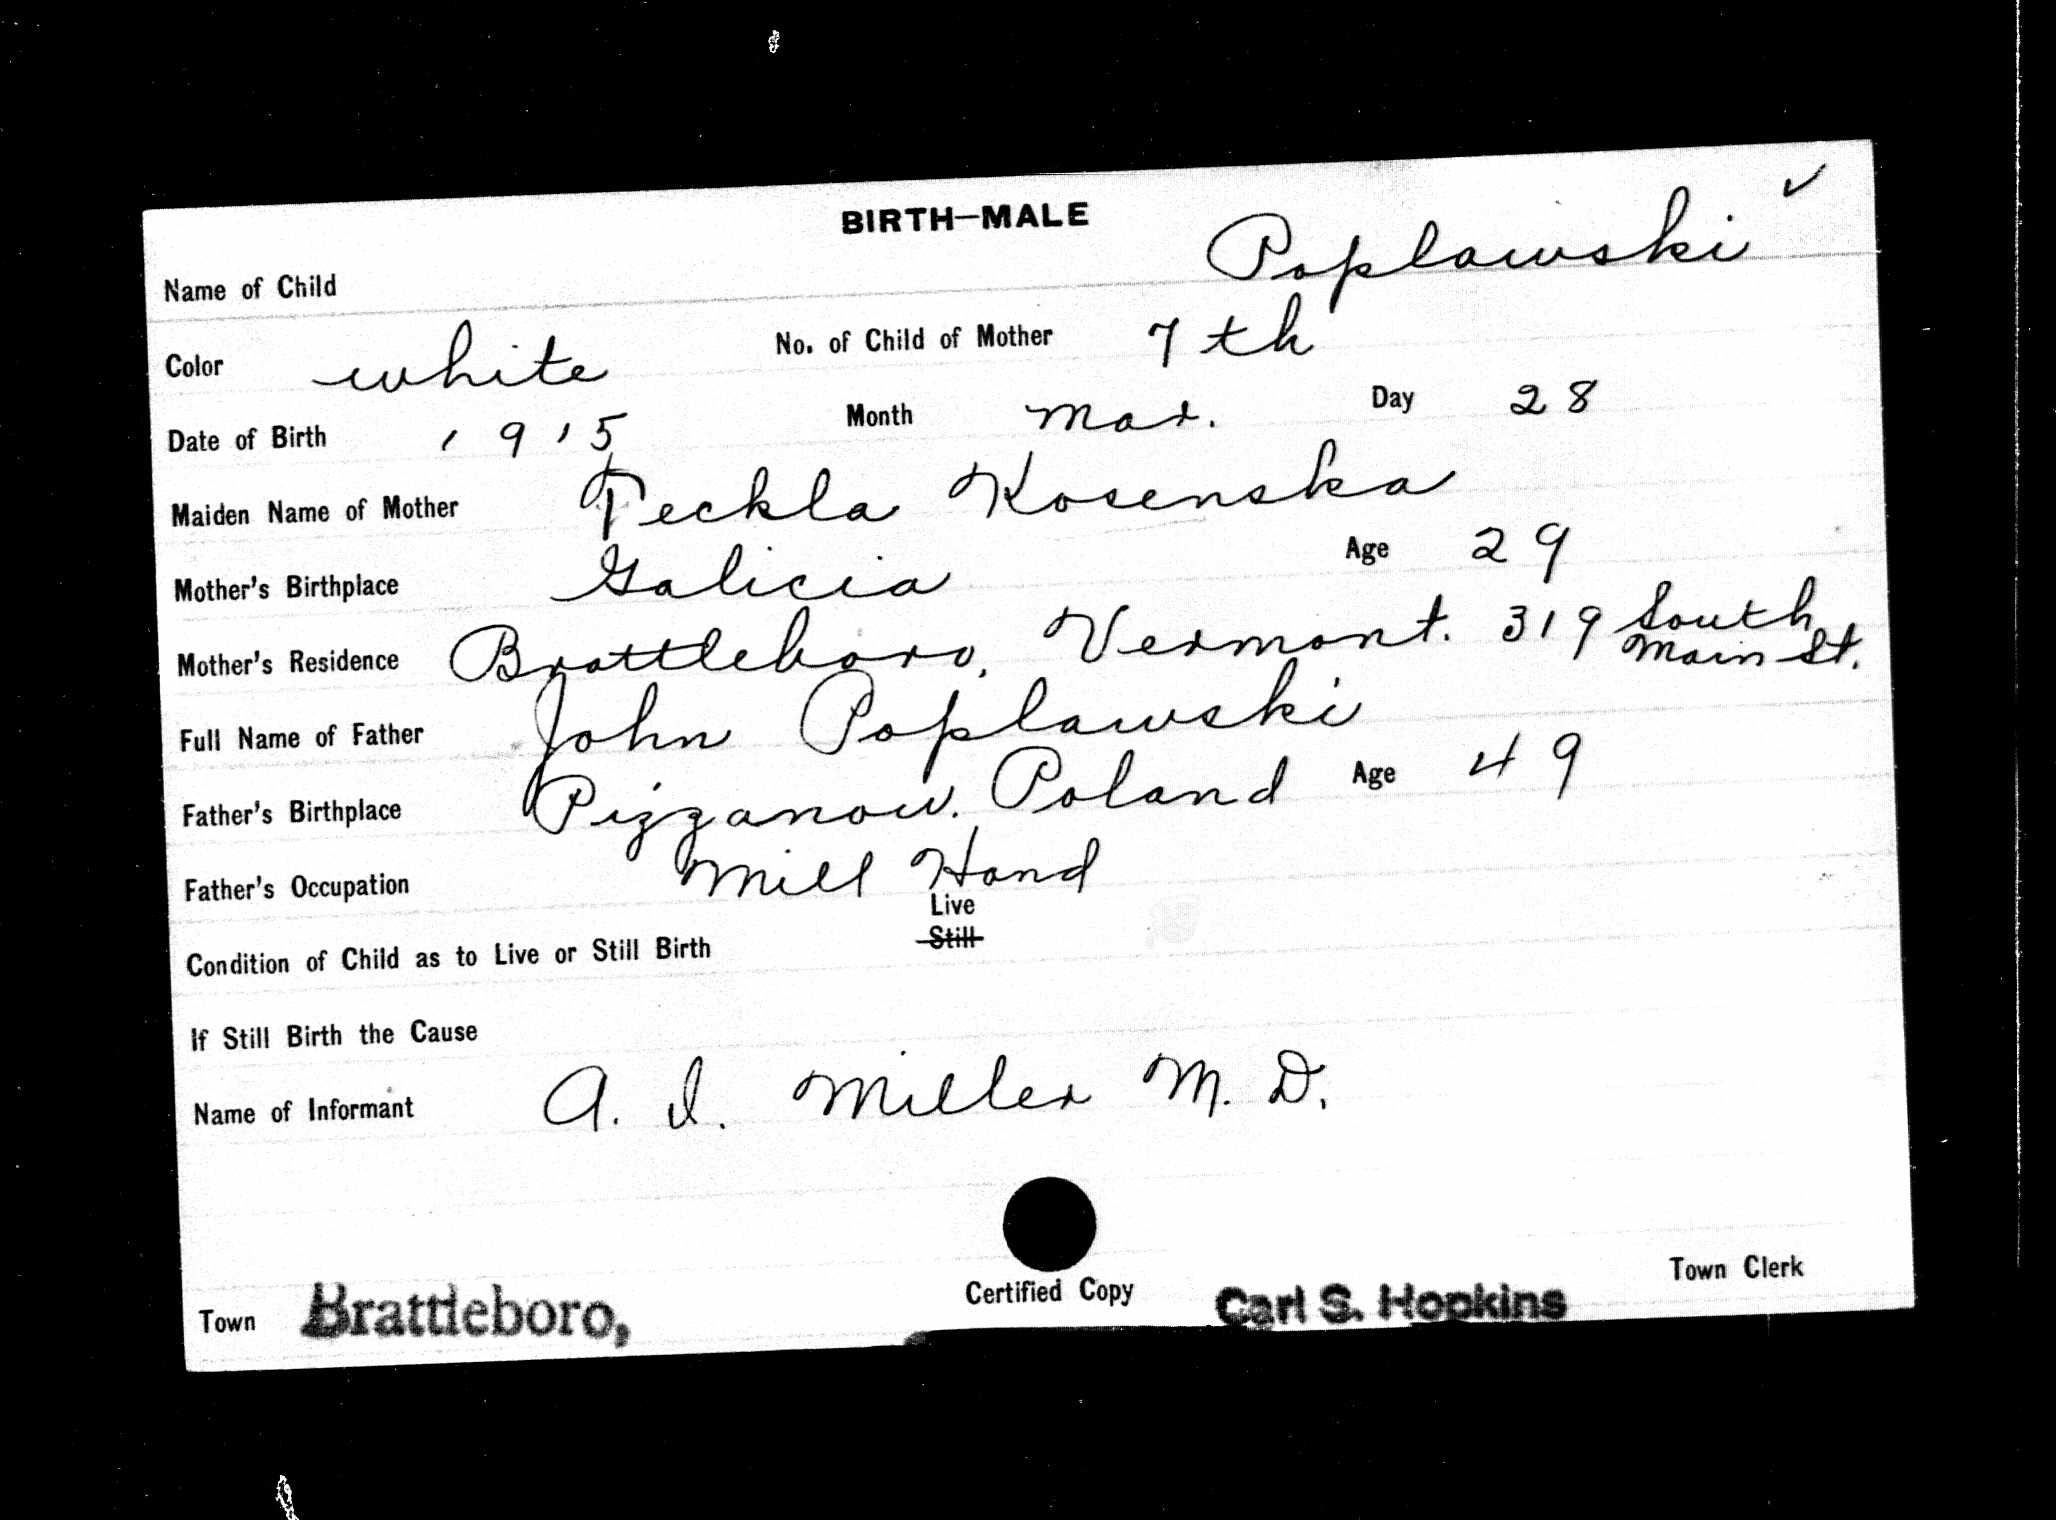 BIRTH—MALE
Name of Child Poplawski ✓
Color white No. of Child of Mother 7th
Date of Birth 1915 Month Mar. Day 28
Maiden Name of Mother Teckla Kosenska
Mother's Birthplace Galicia Age 29
Mother's Residence Brattleboro, Vermont. 319 South Main St.
Full Name of Father John Poplawski
Father's Birthplace Pizzanow. Poland Age 49
Father's Occupation Mill Hand
Live
Condition of Child as to Live or Still Birth Still
If Still Birth the Cause
Name of Informant A. I. Miller M. D.
Town Brattleboro, Certified Copy Carl S. Hopkins Town Clerk